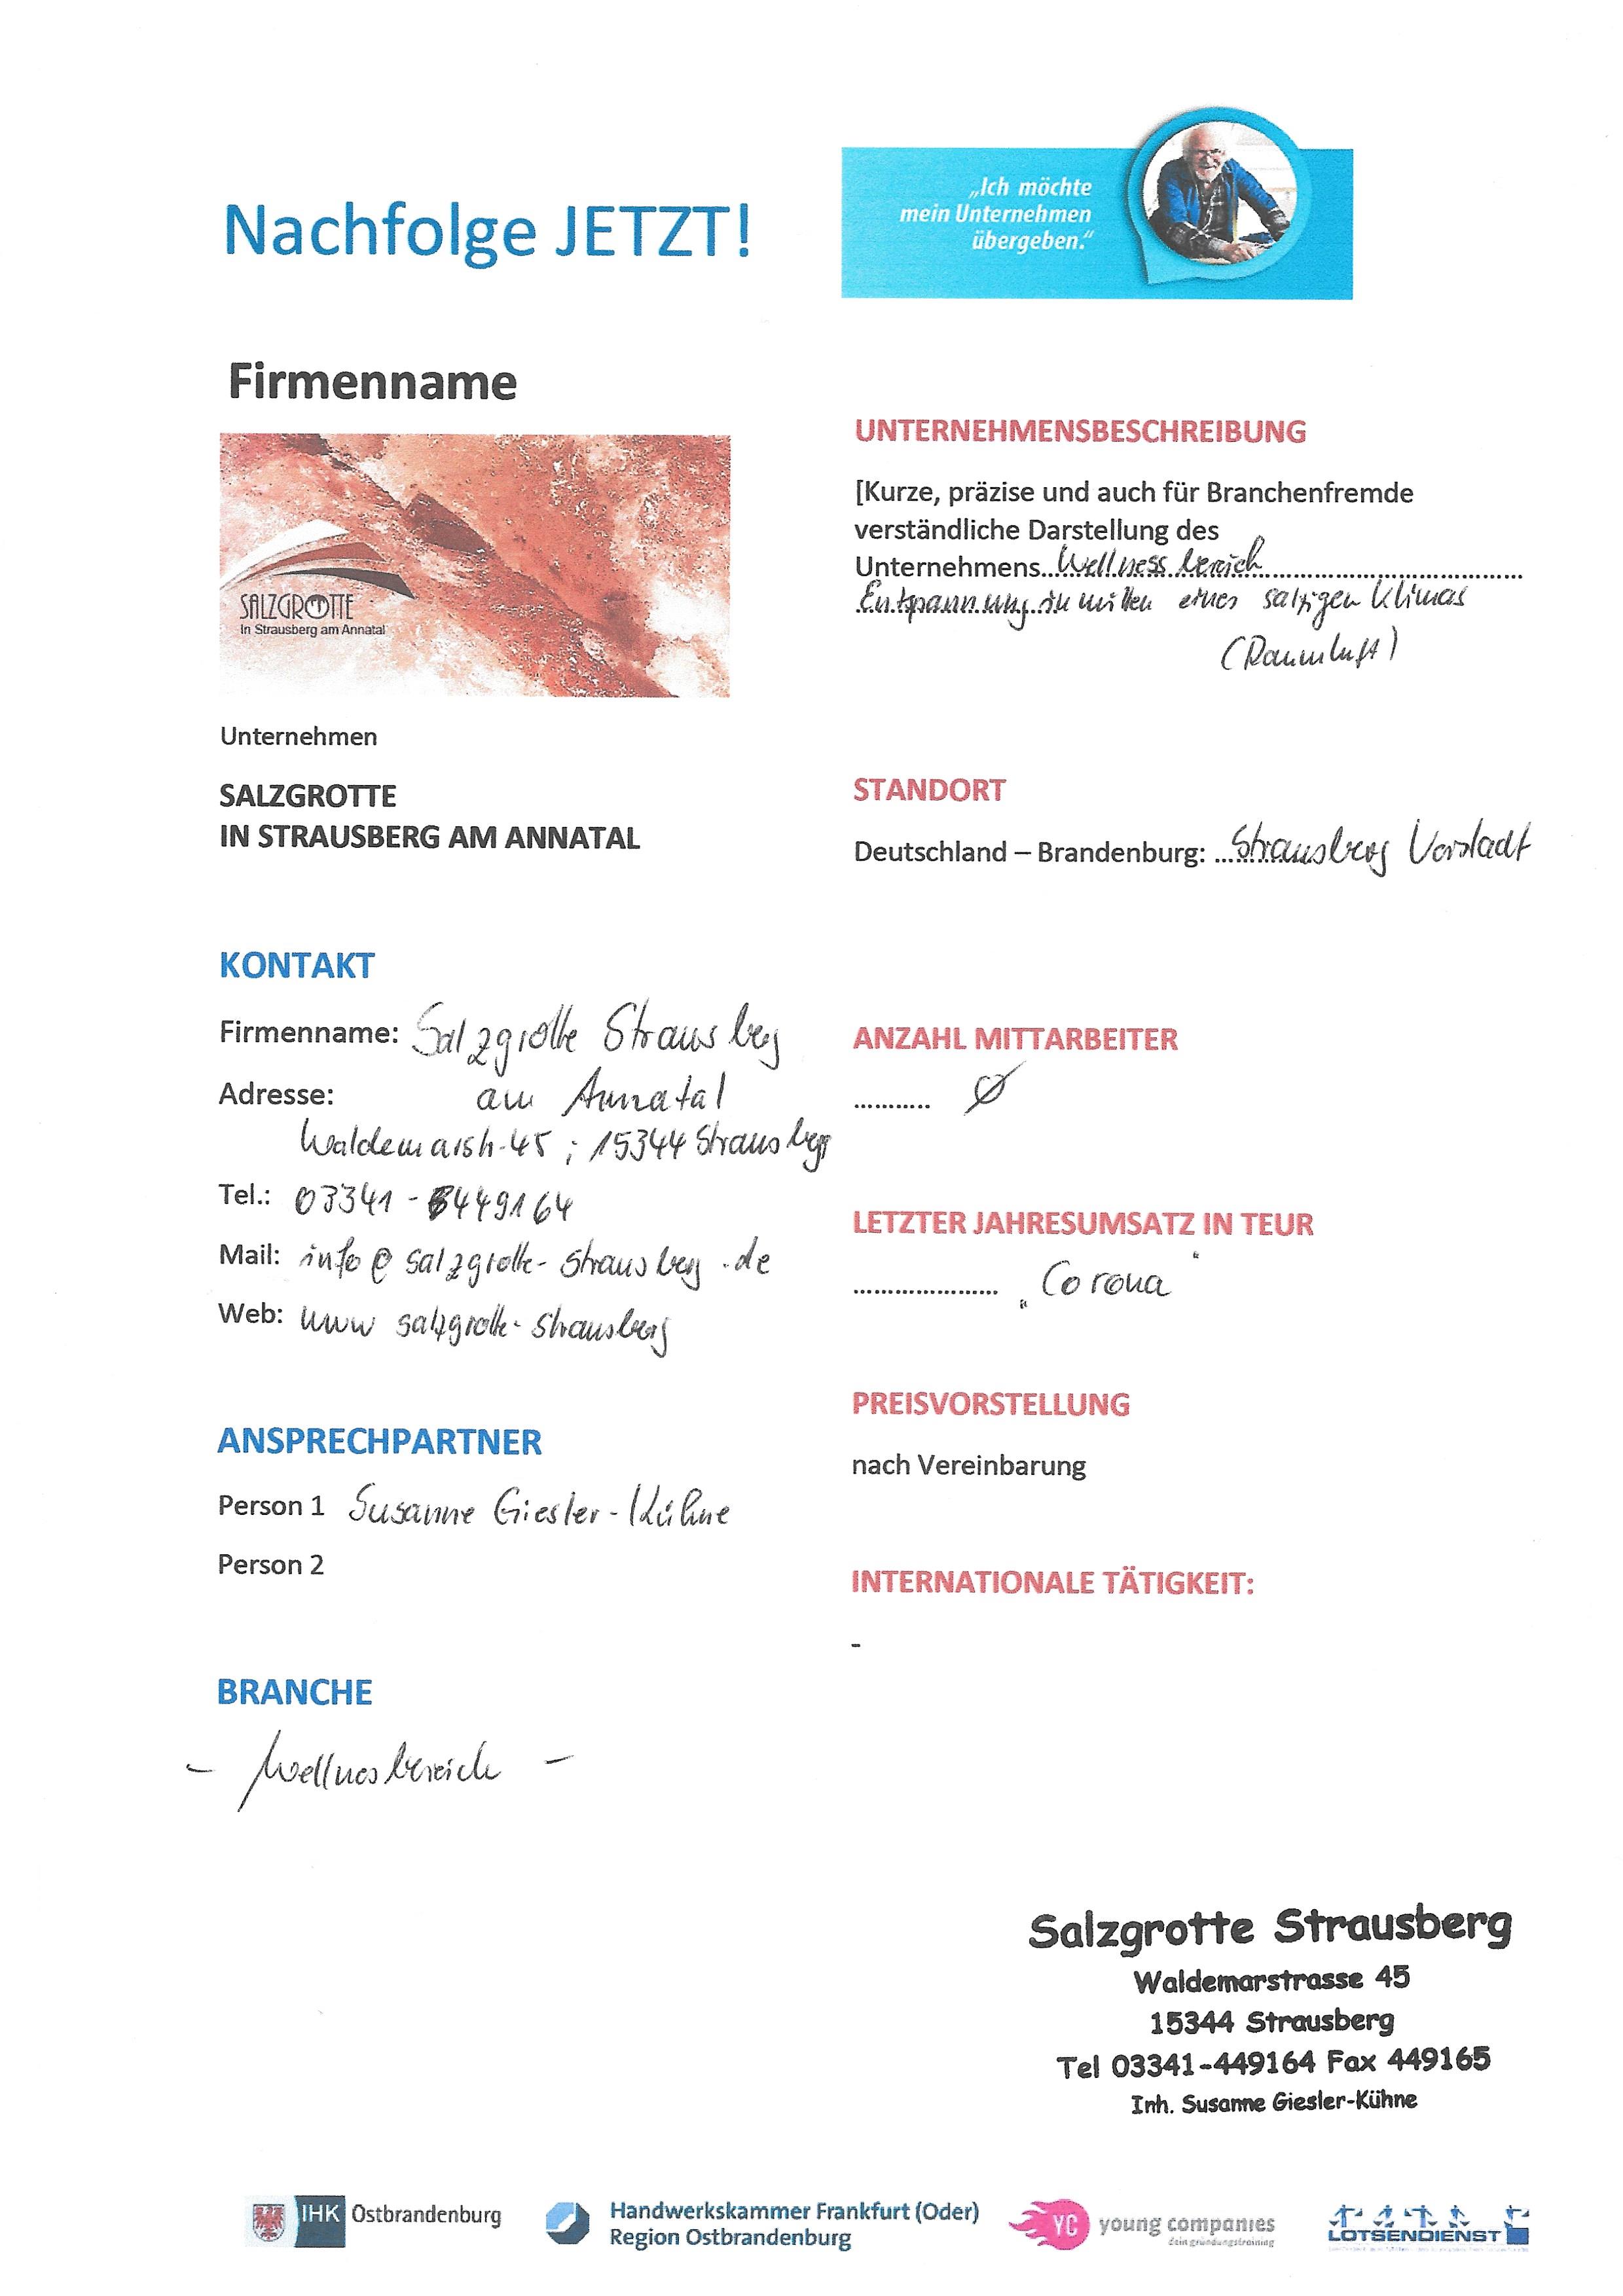 Nachfolge JETZT!
„Ich möchte
mein Unternehmen
übergeben.“
Firmenname
SALZGROTTE
In Strausberg am Annatal
Unternehmen
SALZGROTTE
IN STRAUSBERG AM ANNATAL
KONTAKT
Firmenname: Salzgrotte Strausberg
Adresse: am Annatal
Waldemarstr. 45 ; 15344 Strausberg
Tel.: 03341 - 449164
Mail: info@salzgrotte-strausberg.de
Web: www salzgrotte-strausberg
ANSPRECHPARTNER
Person 1 Susanne Giesler-Kühne
Person 2
BRANCHE
- Wellnesbereich -
UNTERNEHMENSBESCHREIBUNG
[Kurze, präzise und auch für Branchenfremde
verständliche Darstellung des
Unternehmens...Wellnessbereich...
Entspannung in mitten eines salzigen Klimas
(Raumluft)
STANDORT
Deutschland – Brandenburg: ...Strausberg Vorstadt
ANZAHL MITTARBEITER
........... Ø
LETZTER JAHRESUMSATZ IN TEUR
..................... „Corona“
PREISVORSTELLUNG
nach Vereinbarung
INTERNATIONALE TÄTIGKEIT:
-
Salzgrotte Strausberg
Waldemarstrasse 45
15344 Strausberg
Tel 03341-449164 Fax 449165
Inh. Susanne Giesler-Kühne
IHK Ostbrandenburg
Handwerkskammer Frankfurt (Oder)
Region Ostbrandenburg
YC young companies
dein gründungstraining
LOTSENDIENST